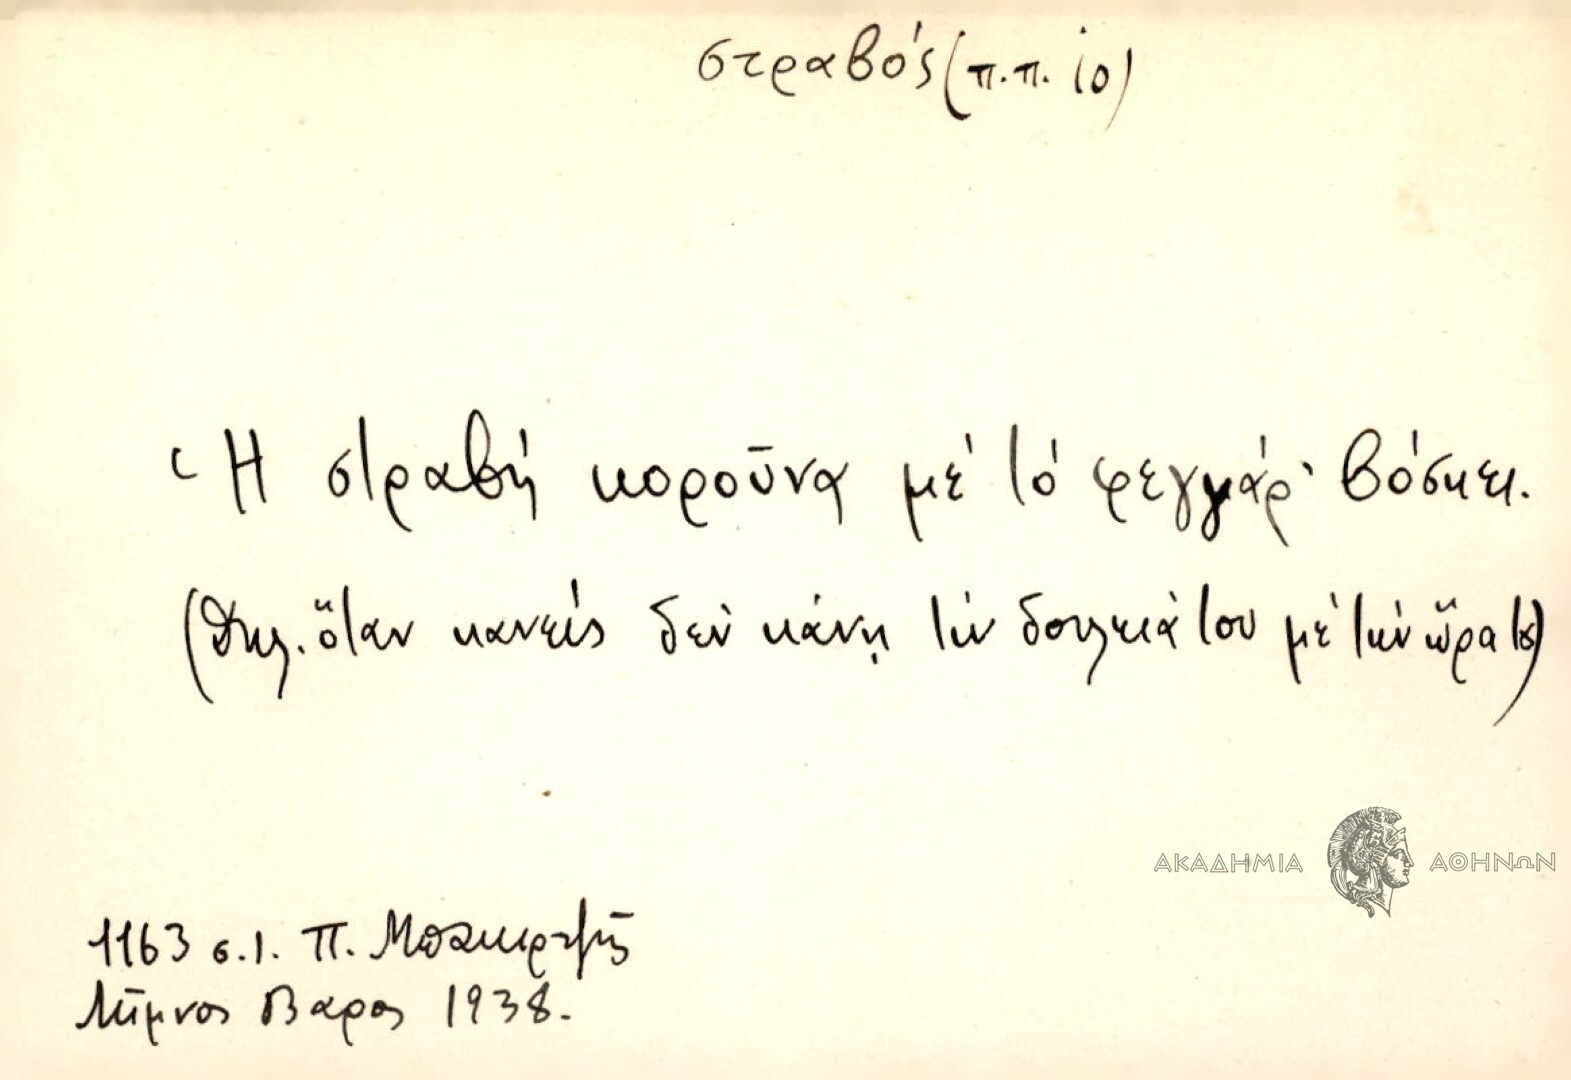 στραβός (π.π. ἰο)
Ἡ στραβή κοροῦνα μέ τό φεγγάρ' βόσκει.
(δηλ. ὅταν κανείς δέν κάνῃ τήν δουλειά του μέ τήν ὥρα του)
ΑΚΑΔΗΜΙΑ ΑΘΗΝΩΝ
1163 σ.1. Π. Μπακιρτζῆς
Λῆμνος Βάρος 1938.